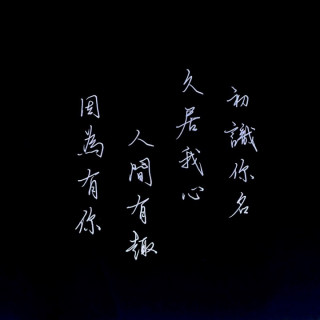 初識你名
久居我心
人間有趣
因為有你